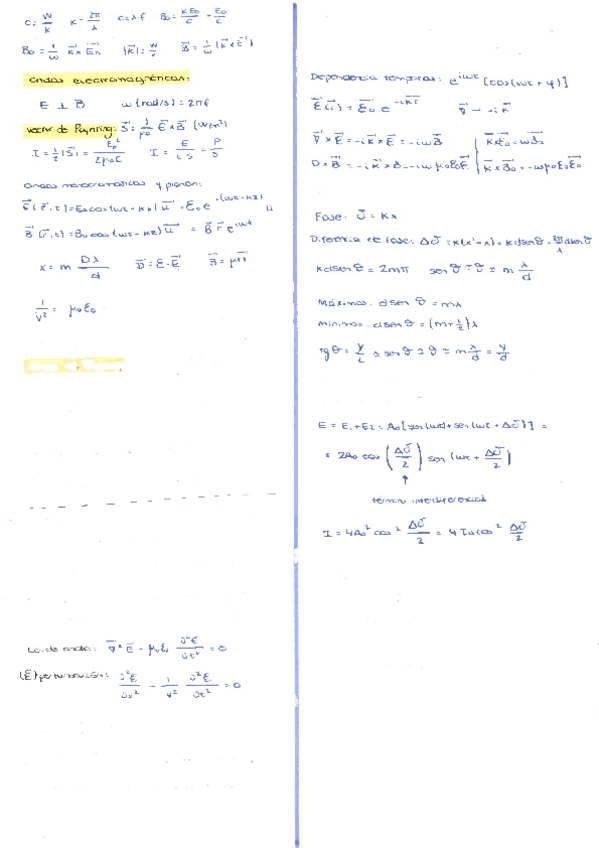 c = w/k   k = 2π/λ   c = λ·f   B₀ = kE₀/c = E₀/c
B₀ = 1/w k⃗ × E⃗₀   |k⃗| = w/v   B⃗ = 1/w (k⃗ × E⃗)
Ondas electromagnéticas:
E ⊥ B   w (rad/s) = 2πf
Vector de Poynting: S⃗ = 1/μ₀ E⃗ × B⃗ (W/m²)
I = ½ |S| = E₀²/2μ₀c   I = E/t·S = P/S
Ondas monocromáticas y planas:
E⃗(r⃗,t) = E₀ cos(wt - kx) u⃗ = E₀ e^i(wt - kx) u
B⃗(r⃗,t) = B₀ cos(wt - kx) u⃗ = B⃗ r e^iwt
x = m Dλ/d   D⃗ = ε·E⃗   B⃗ = μH⃗
1/v² = μ₀ε₀
Ec. de onda: ∇⃗² E⃗ - μ₀ε₀ ∂²E/∂t² = 0
(E) perturbación: ∂²E/∂x² - 1/v² ∂²E/∂t² = 0
Dependencia temporal: e^iwt [cos(wt + φ)]
E⃗(r⃗) = E⃗₀ e^-ik⃗r⃗   ∇⃗ → -ik⃗
∇⃗ × E⃗ = -ik⃗ × E⃗ = -iwB⃗   k⃗ × E⃗₀ = wB⃗₀
∇ × B⃗ = -ik⃗ × B = iwμ₀ε₀E⃗   k⃗ × B⃗₀ = -wμ₀ε₀E⃗₀
Fase: δ = kx
Diferencia de fase: Δδ = k(x' - x) = kdsenθ = 2π/λ dsenθ
kdsenθ = 2mπ   senθ ≃ θ = m λ/d
Máximos: dsenθ = mλ
mínimos: dsenθ = (m + ½)λ
tgθ = y/L ≃ senθ ≃ θ = m λ/d = y/d
E = E₁ + E₂ = A₀[sen(wt) + sen(wt + Δδ)] =
= 2A₀ cos (Δδ/2) sen (wt + Δδ/2)
↑
término interferencial
I = 4A₀² cos² Δδ/2 = 4I₀ cos² Δδ/2